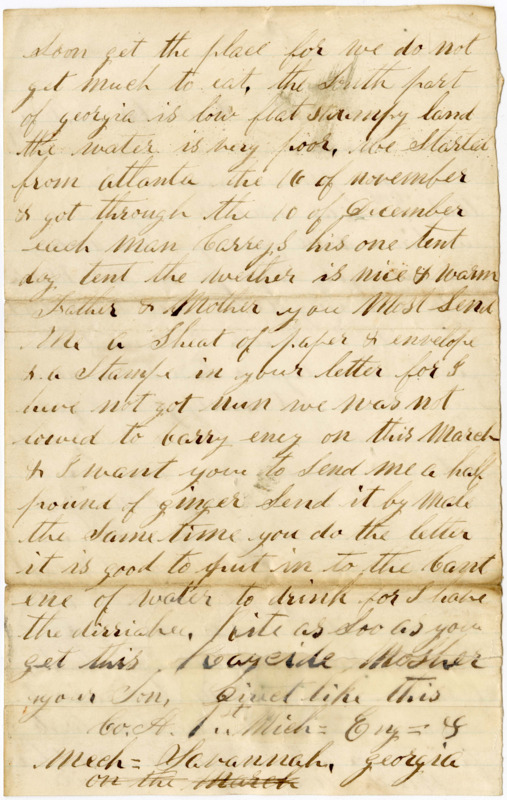 soon get the place for we do not
get much to eat, the South part
of georgia is low flat swampy land
the water is very poor, we Started
from atlanta the 16 of november
& got through the 10 of December
each man Carreys his one tent
dog tent the wether is nice & warm
Father & Mother you Most Send
Me a Sheat of paper & envelope
& a Stampe in your letter for I
have not got nun we was not
lowed to Carry eney on this March
& I want youe to Send me a half
pound of ginger Send it by Male
the Same time you do the letter
it is good to put in to the Cant
ene of water to drink for I have
the dirriahea, rite as Soo as you
get this. Mosher
your Son, Direct like this
Co. A. 1st Mich= Eng= &
Mech= Savannah, georgia
on the March